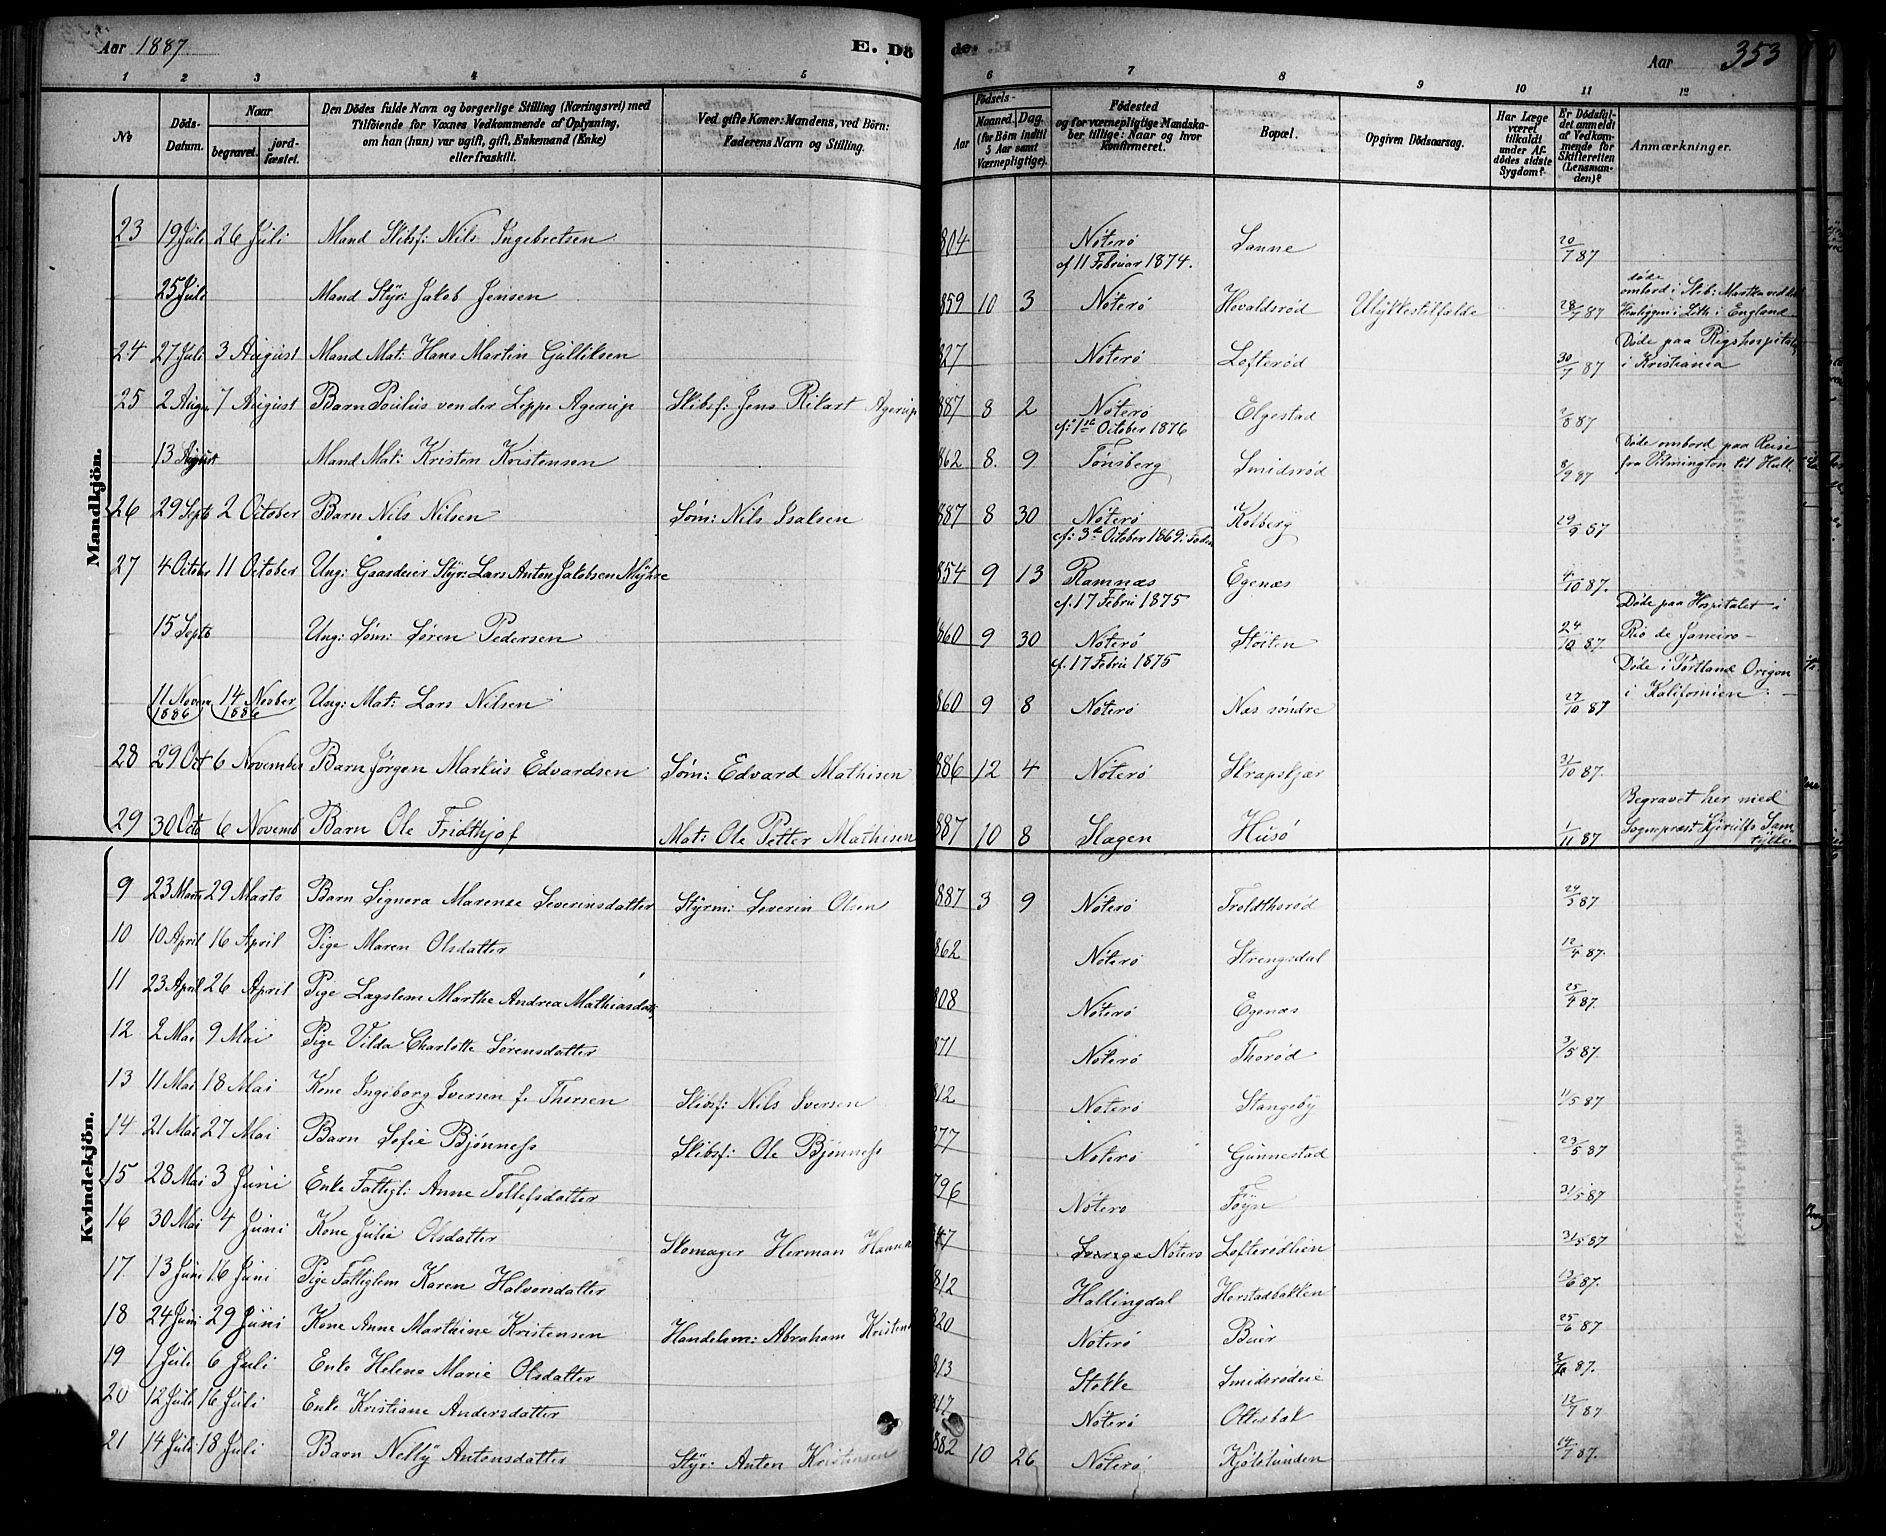 Aar 1887. E. Dö de. Aar 353
1 2 3 4 5 6 7 8 9 10 11 12
No
Döds-Datum.
Naar
begravet.
jord-fæstet.
Den Dödes fulde Navn og borgerlige Stilling (Næringsvei) med
Tilföiende for Voxnes Vedkommende af Oplysning,
om han (hun) var ugift, gift, Enkemand (Enke)
eller fraskilt.
Ved gifte Koner: Mandens, ved Börn:
Faderens Navn og Stilling.
Födsels-
Aar
Maaned. Dag.
(for Börn indtil
5 Aar samt
Værnepligtige).
Födested
og for værnepligtige Mandska-
ber tillige: Naar og hvor
konfirmeret.
Bopæl.
Opgiven Dödsaarsag.
Har Læge
været
tilkaldt
under Af-
dödes sidste
Sygdom?
Er Dödsfal-
det anmeldt
af Vedkom-
mende for
Skifteretten
(Lensman-
den)?
Anmærkninger.
Mandkjön.
23 19 Juli 26 Juli Mand Skibsf: Nils Ingebretsen 804 Nöterö Sanne 20/7 87
cf 11 Februar 1874.
25 Juli Mand Styr: Jakob Jensen 859 10 3 Nöterö Hovaldsröd Ulykkestilfælde 28/7 87
döde ombord i Skib: Martha ved
Henliggen i Leth i England
24 27 Juli 3 August Mand Mat: Hans Martin Gulliksen 827 Nöterö Lofteröd 30/7 87 Döde paa Rigshospitalet
i Kristiania
25 2 Augu 7 August Barn Poulus von der Lippe Agerup Skibsf: Jens Rikart Agerup 887 8 2 Nöterö Elgestad 2/8 87
cf: 1ste October 1876
13 August Mand Mat: Kristen Kristensen 862 8. 9 Tønsberg Smidsröd 8/9 87 Döde ombord paa Reise
fra Vilmington til Hull
26 29 Septb 2 October Barn Nils Nilsen Söm: Nils Isaksen 887 8 30 Nöterö Kolberg 29/9 87
cf: 3de October 1869:
27 4 October 11 October Ung: Gaardeier Styr: Lars Anton Jakobsen Myhre 854 9 13 Ramnæs Egenæs 4/10 87.
cf. 17 Febru 1875
15 Septb Ung: Söm: Sören Pedersen 860 9 30 Nöterö Stöiten 24/10 87. Döde paa Hospitalet i
Rio de Janeiro
cf. 17 Febru 1875
11 Novem 1886 14 Novber 1886 Ung: Mat: Lars Nilsen 860 9 8 Nöterö Næs söndre 27/10 87 Döde i Portland Origon
i Kalifornien
28 29 Oct 6 November Barn Jörgen Markus Edvardsen Söm: Edvard Mathisen 886 12 4 Nöterö Skrapskjær 31/10 87.
29 30 Octb 6 Novemb Barn Ole Fridthjof Mat: Ole Petter Mathisen 887 10 8 Slagen Husö 1/11 87 Begravet her med
Sognepræst Kjerulfs Sam
tykke.
Kvindekjön.
9 23 Marts 29 Marts Barn Signera Marense Severinsdatter Styrm: Severin Olsen 1887 3 9 Nöterö Troldthoröd 24/3 87
10 10 April 16 April Pige Maren Olsdatter 862 Nöterö Strengsdal 12/4 87.
11 23 April 26 April Pige Lægslem Marthe Andrea Mathiasdatt 808 Nöterö Egenæs 25/4 87.
12 2 Mai 9 Mai Pige Vilda Charlotte Sörensdatter 871 Nöterö Thoröd 3/5 87.
13 11 Mai 18 Mai Kone Ingeborg Iversen f. Thorsen Skibsf: Nils Iversen 812 Nöterö Stangeby 11/5 87
14 21 Mai 27 Mai Barn Sofie Bjönness Skibsf: Ole Bjönness 877 Nöterö Gunnestad 23/5 87
15 28 Mai 3 Juni Enke Fattigl: Anne Tollefsdatter 796 Nöterö Föyn 31/5 87
16 30 Mai 4 Juni Kone Julie Olsdatter Skomager Herman 847 Sverge Nöterö Lofterödlien 31/5 87
17. 13 Juni 16 Juni Pige Fattiglem Karen Halvorsdatter 812 Hallingdal Herstadbakken 13/6 87.
18 24 Juni 29 Juni Kone Anne Marthine Kristensen Handelsm: Abraham Kristens 820 Nöterö Buer 25/6 87
19 1 Juli 6 Juli Enke Helene Marie Olsdatter 813 Stokke Smidsrödeie 87.
20 12 Juli 16 Juli Enke Kristiane Andersdatter 817 Nöterö Ottesbak 12/7 87
21 14 Juli 18 Juli Barn Nelly Antonsdatter Styr: Anton Kristensen 882 10 26 Nöterö Kjölelunden 14/7 87.